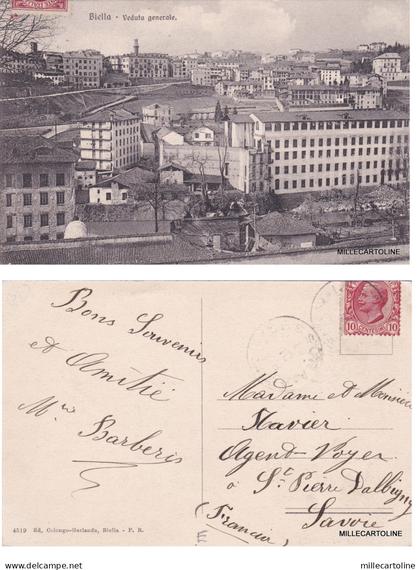 Biella - Veduta generale.
MILLECARTOLINE
Bons Souvenirs
et Amitié
Mr Barberis
10 10
Madame et Monsieur
Xavier
Agent-Voyer
à St Pierre d'Albigny
Savoie
(Francia)
4519 Ed. Colongo-Garlanda, Biella - P. R.
MILLECARTOLINE